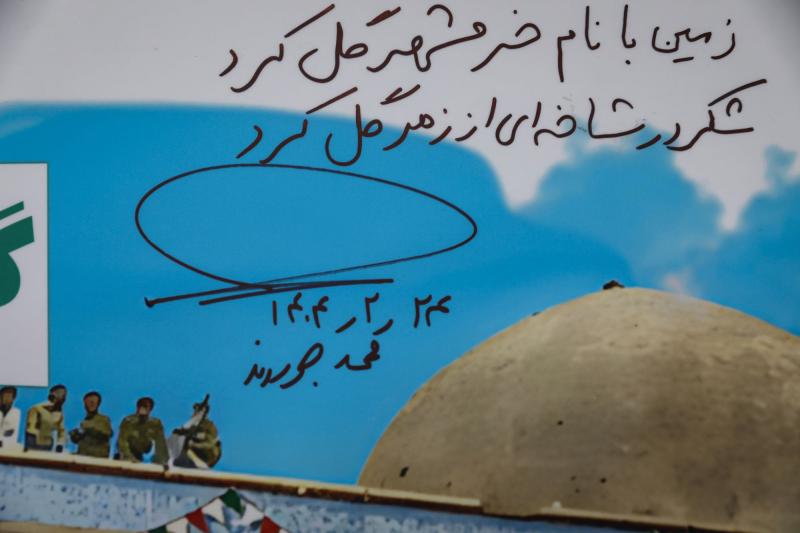 زمین با نام خرمشهر گل کرد
شکر در شاخه‌ای از زهر گل کرد
۲۴ ر ۲ ر ۱۴۰۴
محمد